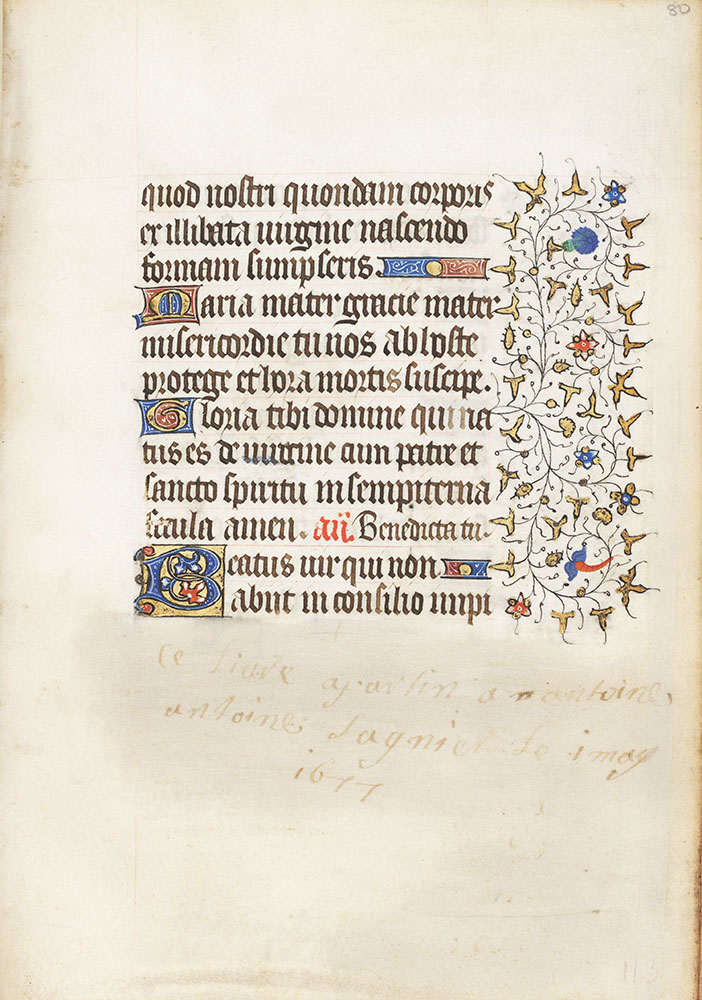 80
quod nostri quondam corporis
ex illibata uirgine nascendo
formam sumpseris.
Maria mater gracie mater
misericordie tu nos ab hoste
protege et hora mortis suscipe.
Gloria tibi domine qui na
tus es de uirgine cum patre et
sancto spiritu in sempiterna
secula amen. añ. Benedicta tu.
Beatus uir qui non
abiit in consilio impi
ce liure apartin a antoine
antoine Lagnier Le i may
1677
113